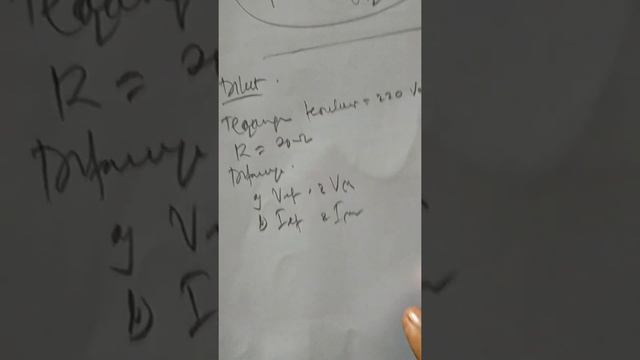 Diket.
Tegangan = 220 V
R = 20 Ω
Ditanya.
a) Vef. & Vm
b) Ief & Im